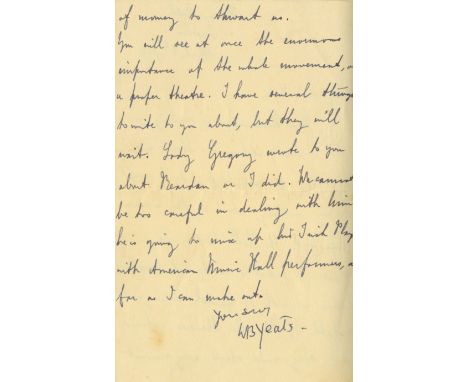 of money to thwart us.
You will see at once the enormous
importance of the whole movement, of
a proper theatre. I have several things
to write to you about, but they will
wait. Lady Gregory wrote to you
about Reardan or I did. We cannot
be too careful in dealing with him
he is going to mix up his Irish Play
with American Music Hall performers, as
far as I can make out.
Yours
WBYeats -